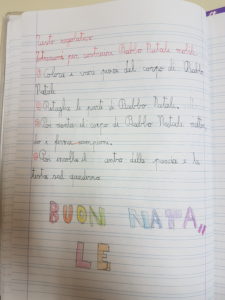 Testo regolativo
Istruzioni per costruire Babbo Natale mobile
1) Colora i vari pezzi del corpo di Babbo
Natale
2) Ritaglia le parti di Babbo Natale.
3) Poi monta il corpo di Babbo Natale
do i ferma campioni.
4) Poi incolla il centro della pancia e la
testa sul quaderno
BUON NATA
LE